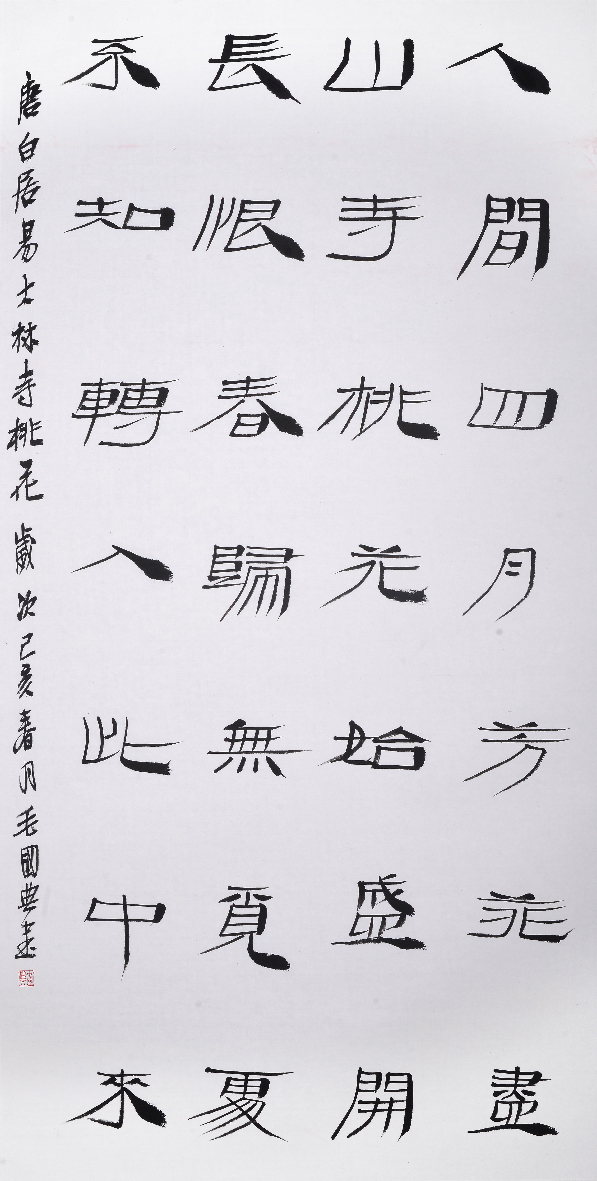 人間四月芳菲盡
山寺桃花始盛開
長恨春歸無覓處
不知轉入此中來
唐白居易大林寺桃花 歲次己亥春月毛國典書